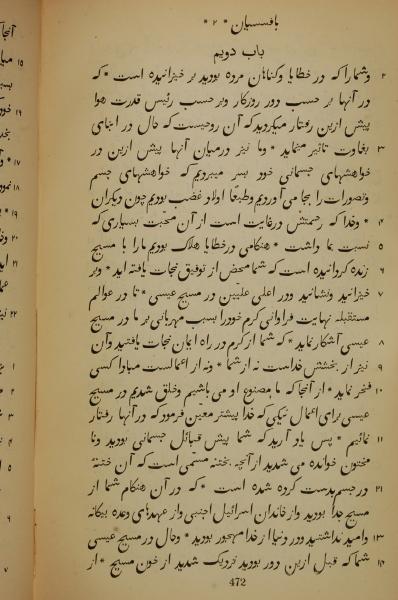 بافسسیان * ۲ *
باب دویم
۲ وشمارا که در خطایا وکناهان مرده بودید بر خیزانیده است * که
در آنها بر حسب دور روزکار وبر حسب رئیس قدرت هوا
پیش ازین رفتار میکردید که آن روحیست که حال در ابنای
۳ بغاوت تاثیر مینماید * وما نیز درمیان آنها پیش ازین در
خواهشهای جسمانی خود بسر میبردیم که خواهشهای جسم
وتصورات را بجا می آوردیم وطبعًا اولاد غضب بودیم چون دیکران
۴ * وخدا که رحمتش درغایت است از آن محبت بسیاری که
۵ نسبت بما داشت * هنکامی درخطایا هلاک بودیم مارا با مسیح
۶ زنده کردانیده است که شما محض از توفیق نجات یافته اید * وبر
۷ خیزانید ونشانید ودر اعلی علیین در مسیح عیسی * تا در عوالم
مستقبله نهایت فراوانی کرم خودرا بسبب مهربانی بر ما در مسیح
۸ عیسی آشکار نماید * که شما از کرم در راه ایمان نجات یافتید وآن
۹ نیز از بخشش خداست نه از شما * ونه از اعمالست مبادا کسی
۱۰ فخر نماید * از آنجا که ما مصنوع او می باشیم وخلق شدیم در مسیح
عیسی برای اعمال نیکی که خدا پیشتر معین فرمود که در آنها رفتار
۱۱ نمائیم * پس یاد آرید که شما پیش قبائل جسمانی بودید ونا
مختون خوانده می شدید از آنچه بختنه مسمّی است که آن ختنهٔ
۱۲ در جسم بدست کرده شده است * که در آن هنکام شما از
مسیح جدا بودید واز خاندان اسرائیل اجنبی واز عهدهای وعده بیکانه
۱۳ وامید نداشتید ودر دنیا از خدا مهجور بودید * وحال در مسیح عیسی
۱۴ شما که قبل ازین دور بودید نزدیک شدید از خون مسیح * از
472